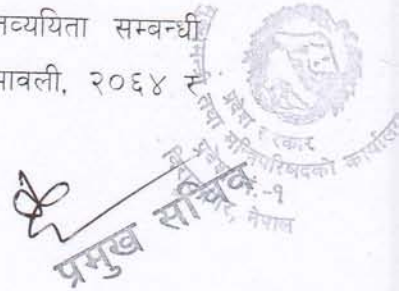 तव्ययिता सम्बन्धी
मावली, २०६४ र
प्रदेश सरकार
तथा मन्त्रिपरिषदको कार्यालय
नेपाल
प्रमुख सचिव